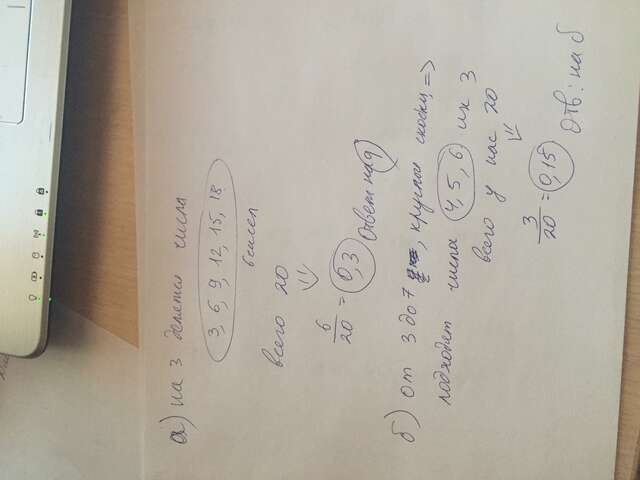 а) на 3 делятся числа
3, 6, 9, 12, 15, 18
6 чисел
всего 20
6/20 = 0,3 Ответ на а)
б) от 3 до 7, круглые скобки =>
подходят числа 4, 5, 6 их 3
всего у нас 20
3/20 = 0,15 Отв: на б